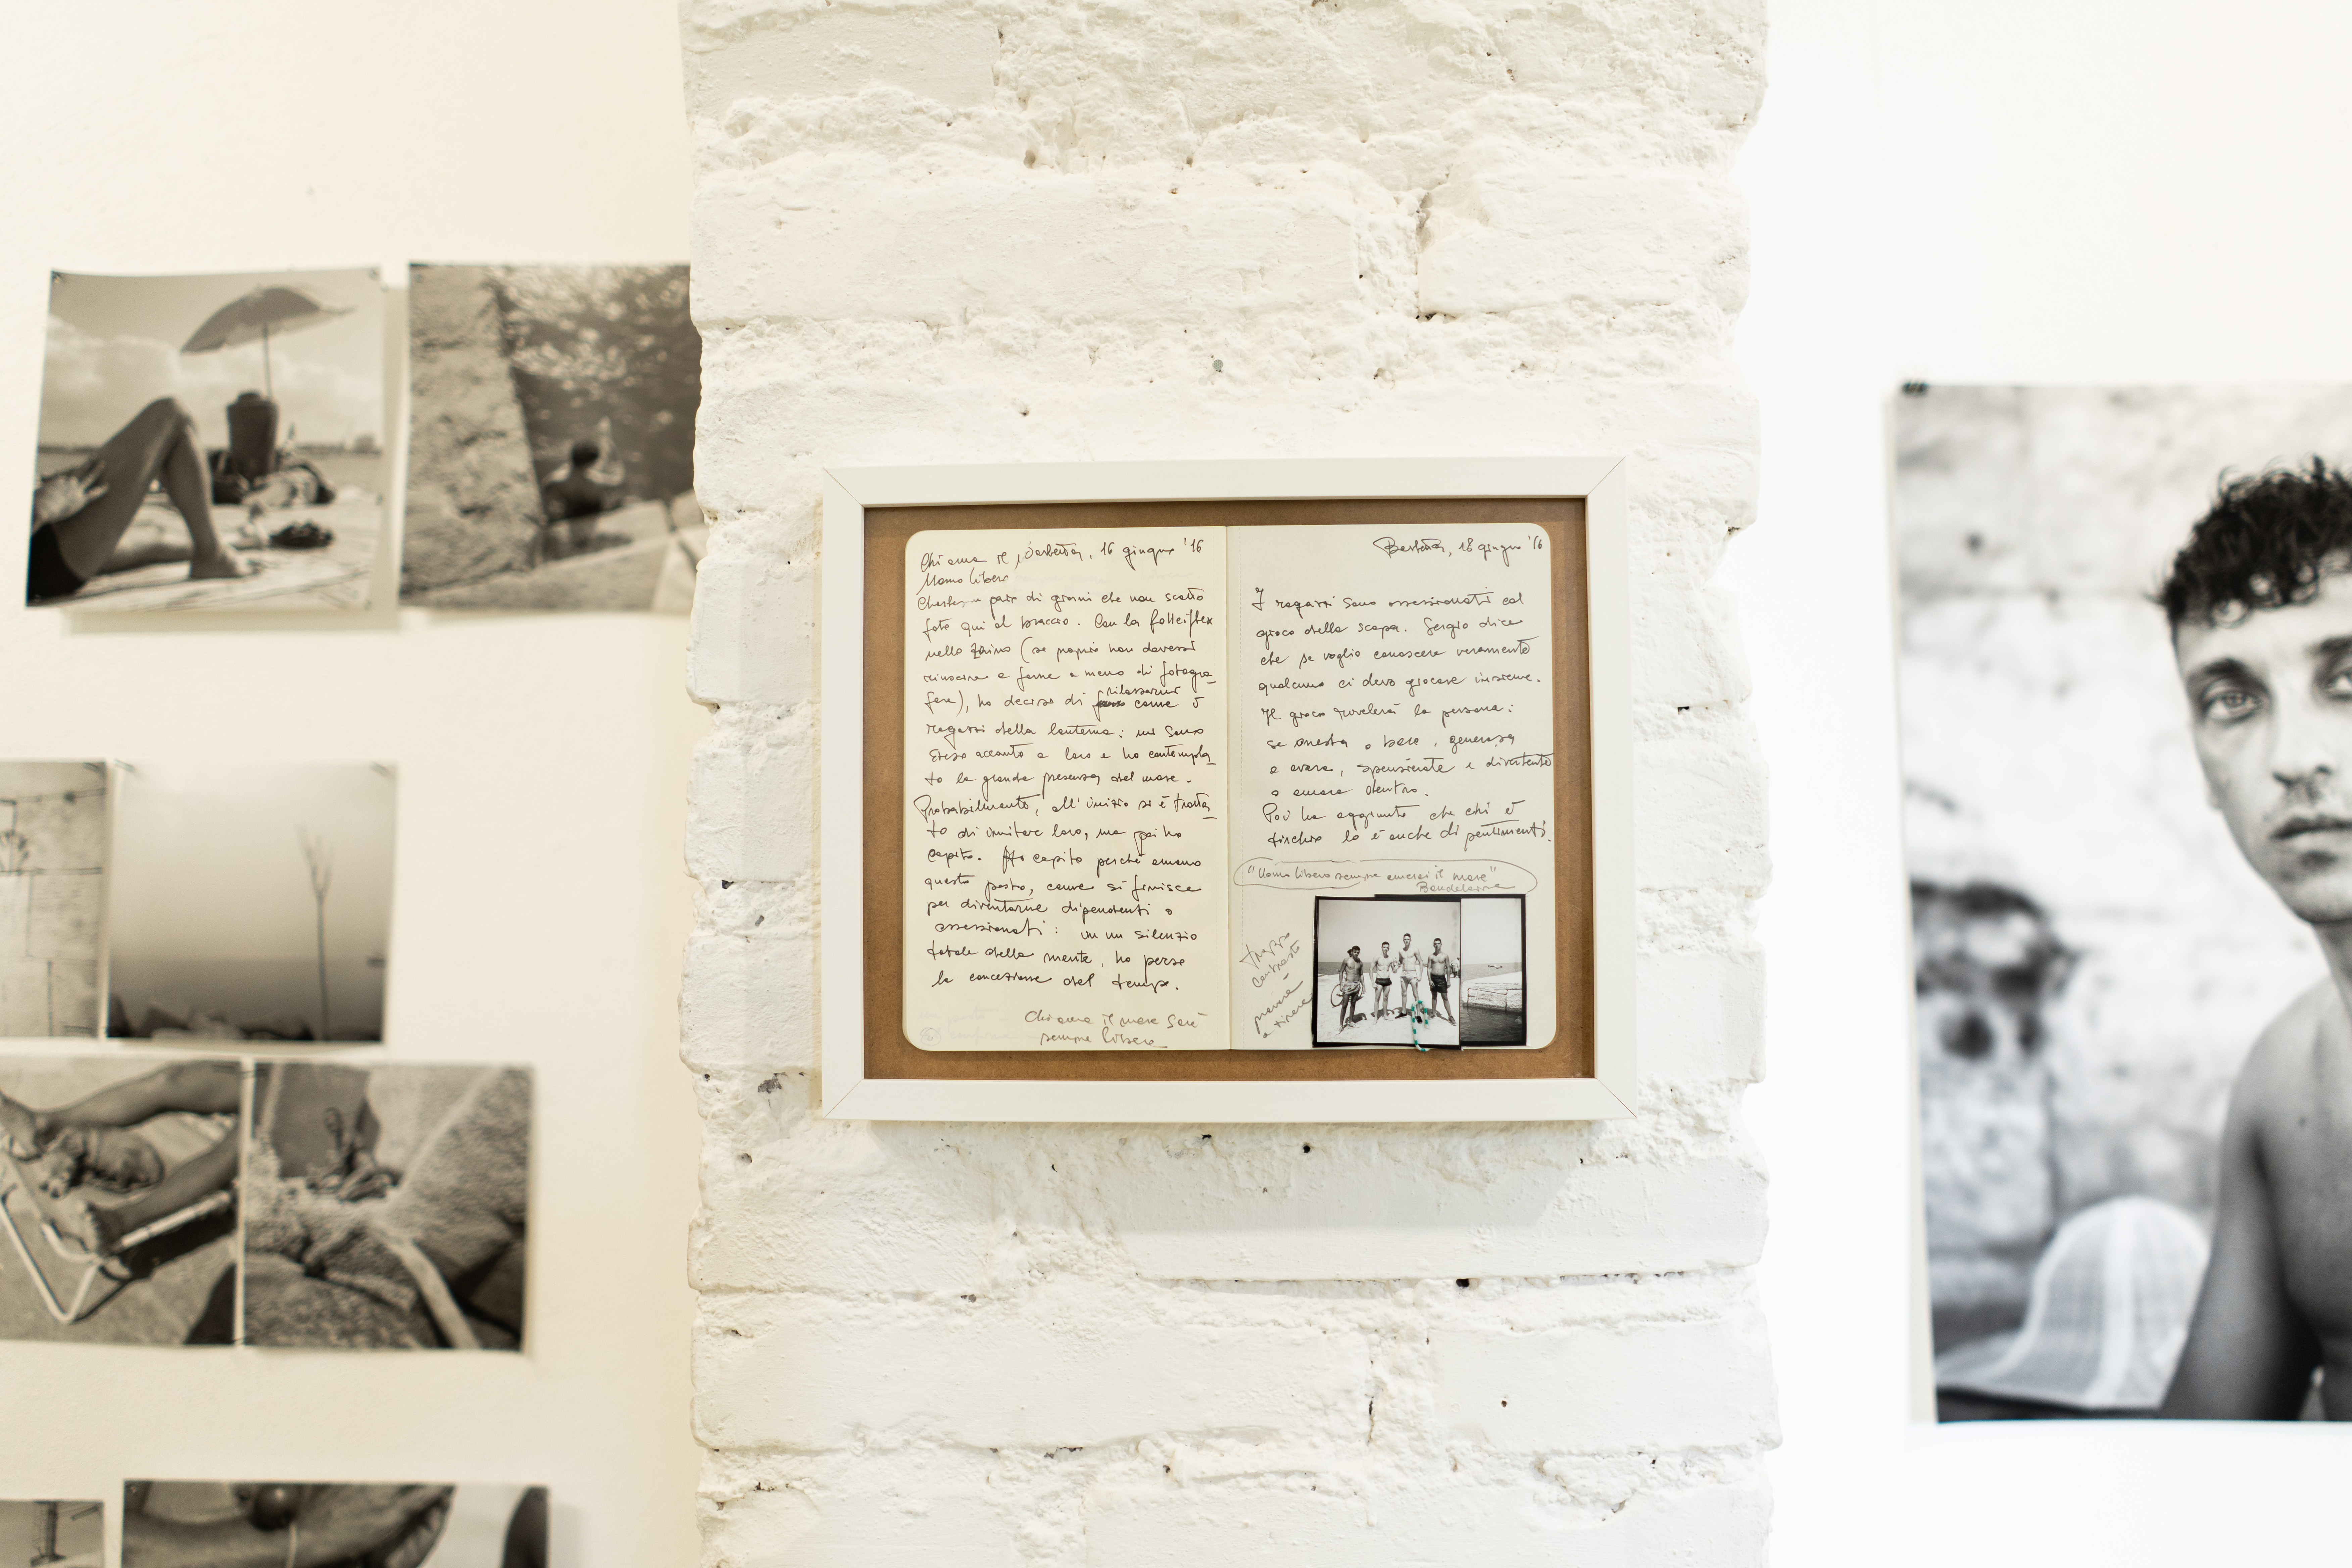 Chi ama il , Barletta, 16 giugno '16
Uomo libero
paio di giorni che non scatto
foto qui al braccio. Con la Rolleiflex
nello zaino (se proprio non dovessi
riuscire a farne a meno di fotogra_
fare), ho deciso di rilassarmi come i
ragazzi della lanterna: mi sono
steso accanto a loro e ho contempla_
to la grande presenza del mare.
Probabilmente, all'inizio si è tratta_
to di imitare loro, ma poi ho
capito. Ho capito perché amano
questo posto, come si finisce
per diventarne dipendenti o
ossessionati: in un silenzio
totale della mente, ho perso
la concezione del tempo.
Chi ama il mare sarà
sempre libero
Barletta, 18 giugno '16
I ragazzi sono ossessionati col
gioco della scopa. Sergio dice
che se voglio conoscere veramente
qualcuno ci devo giocare insieme.
Il gioco rivelerà la persona:
se onesta o baro, generosa
o avara, spensierata e divertente
o amara dentro.
Poi ha aggiunto che chi è
tirchio lo è anche di sentimenti.
"Uomo libero sempre amerai il mare"
Baudelaire
troppo
contrasto
-
provare
a tirare